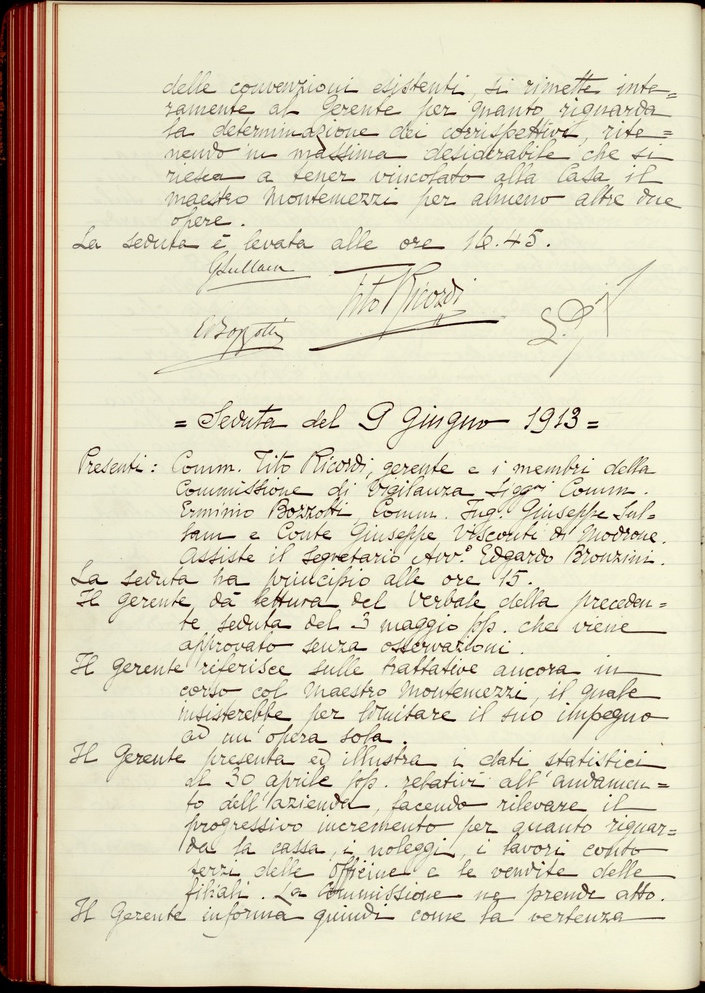 delle convenzioni esistenti, si rimette inte=
ramente al Gerente per quanto riguarda
la determinazione dei corrispettivi, rite=
nendo in massima desiderabile che si
riesca a tener vincolato alla Casa il
maestro Montemezzi per almeno altre due
opere.
La seduta è levata alle ore 16.45.
GSullam
Tito Ricordi
EBozzotti
= Seduta del 9 giugno 1913 =
Presenti: Comm. Tito Ricordi, gerente e i membri della
Commissione di Vigilanza Sigg.ri Comm.
Erminio Bozzotti Comm. Ing. Giuseppe Sul-
lam e Conte Giuseppe Visconti di Modrone.
Assiste il segretario Avv.o Edgardo Bronzini.
La seduta ha principio alle ore 15.
Il gerente dà lettura del verbale della preceden-
te seduta del 3 maggio pp. che viene
approvato senza osservazioni.
Il gerente riferisce sulle trattative ancora in
corso col maestro Montemezzi, il quale
insisterebbe per limitare il suo impegno
ad un'opera sola.
Il Gerente presenta ed illustra i dati statistici
al 30 aprile pp. relativi all'andamen=
to dell'azienda, facendo rilevare il
progressivo incremento per quanto riguar=
da la cassa, i noleggi, i lavori conto
terzi delle Officine e le vendite delle
filiali. La Commissione ne prende atto.
Il Gerente informa quindi come la vertenza